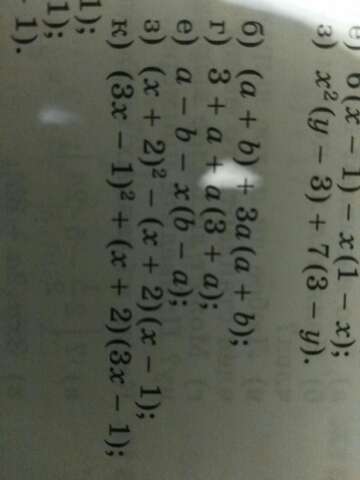 е) 6(x − 1) − x(1 − x);
з) x²(y − 3) + 7(3 − y).
б) (a + b) + 3a(a + b);
г) 3 + a + a(3 + a);
е) a − b − x(b − a);
з) (x + 2)² − (x + 2)(x − 1);
к) (3x − 1)² + (x + 2)(3x − 1);
1);
1);
1).